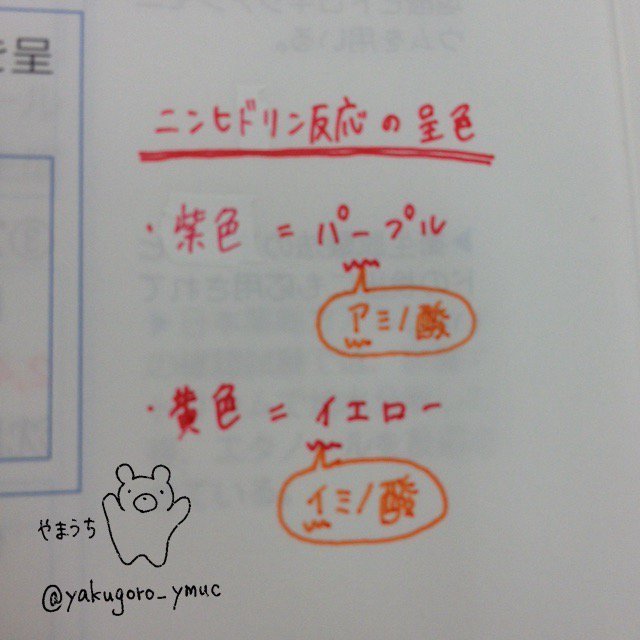 ウムを用いる。
呈
ニンヒドリン反応の呈色
・紫色 = パープル
アミノ酸
・黄色 = イエロー
イミノ酸
やまうち
@yakugoro_ymuc